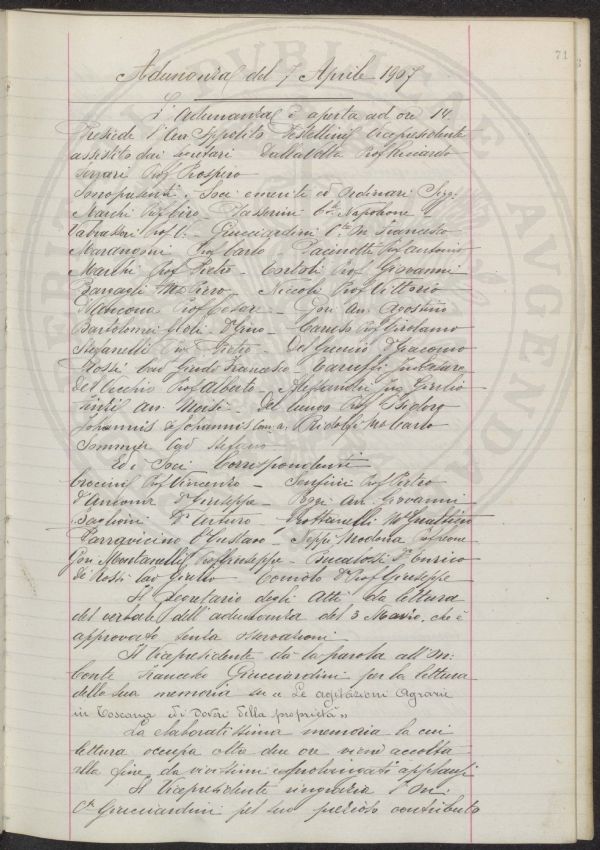 71
Adunanza del 7 Aprile 1907
L'adunanza è aperta ad ore 14.
Presiede l'Avv. Ippolito Pestellini Vicepresidente
assistito dai segretari Dalla Volta Prof. Riccardo
Ferrari Prof. Prospero
Sono presenti i Soci emeriti ed Ordinari Sigg:
Marchi Prof. Ciro – Passerini Cte Napoleone
Valvassori Prof. V. – Guicciardini Cte On. Francesco
Marangoni Prof. Carlo – Pacinotti Prof. Antonio
Marchi Prof. Pietro – Bertoli Prof. Giovanni
Bargagli M. Piero – Niccoli Prof. Vittorio
D'Ancona Prof. Cesare – Gori Avv. Agostino
Bartolomei Gioli D. Gino – Caruso Prof. Girolamo
Stefanelli Pietro – Del Guercio D. Giacomo
Rossi Cav. Girolamo Francesco – Caruffi Cesare
Del Vecchio Prof. Alberto – Alessandri Ing. Giulio
Finzi Avv. Moisè – Del Lungo Prof. Isidoro
Johannis De Johannis Comm. A. Ridolfi M. Carlo
Sommier Cav. Stefano
Ed i Soci Corrispondenti
Crocini Prof. Vincenzo – Sonfini Prof. Pietro
D'Ancona D. Giuseppe – Poggi Avv. Giovanni
Baglioni D. Arturo – Rottanelli M. Gualtiero
Parravicino Cte Gustavo – Neppi Modona Prof. Leone
Gori Montanelli Prof. Giuseppe – Bucalossi D. Enrico
De Rossi Cav. Giulio Comoto D. Prof. Giuseppe
Il Segretario degli Atti da lettura
del verbale dell'adunanza del 3 Marzo, che è
approvato senza osservazioni
Il Vicepresidente dà la parola all'On:
Conte Francesco Guicciardini per la lettura
della sua memoria su « Le agitazioni Agrarie
in Toscana ed i Doveri della proprietà »
La elaboratissima memoria la cui
lettura occupa oltre due ore viene accolta
alla fine da vivissimi e prolungati applausi
Il Vicepresidente ringrazia l'On:
Cte Guicciardini pel suo prezioso contributo